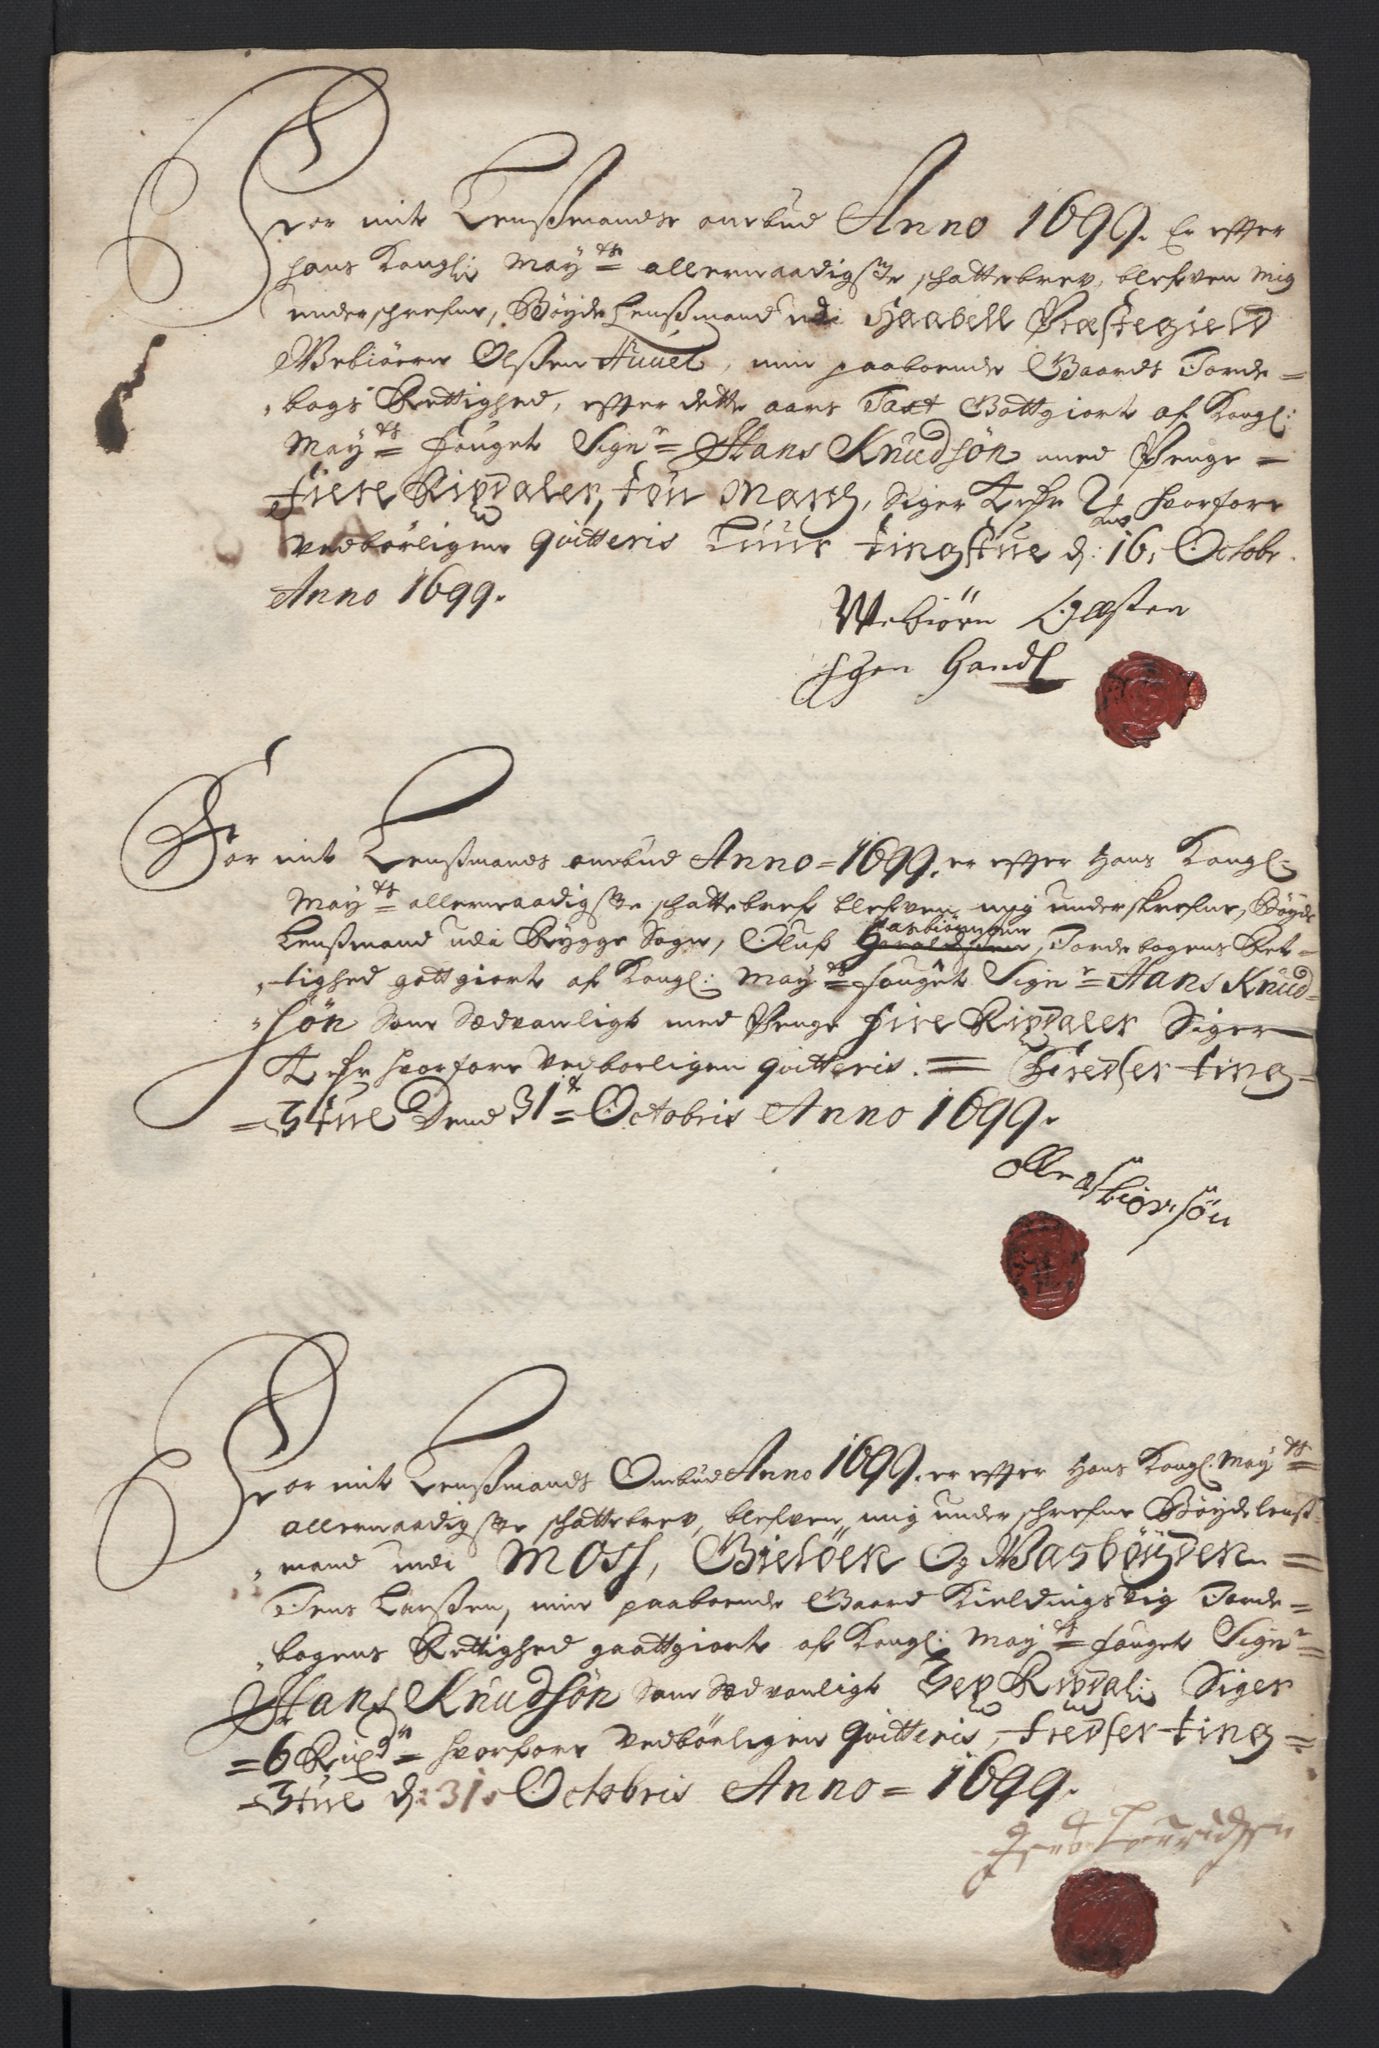 For mit Lensmands ombud Anno 1699. Er effter
Hans Kongli: May:ts allernaadigste schattebrev, blefven mig
underschrefne, Bøyde Lensmand udi Haabell Præstegield
Webiörn Olssen Huuel, min paaboende Gaards Jorde=
=bogs Rettighed, effter dette aars Taxt Gottgiort af Kongl:
May:ts fouget Sign:r Hans Knudsøn med Penge =
fiere Rixdaler, tou March, Siger 4 Rdr 2 # hvorfore
vedbørligen qvitteris Tingstue d: 16 Octobr.
Anno 1699.
Webiörn Olssen
Egen Handt
For mit Lensmands ombud Anno = 1699. er effter Hans Kongl:
May:ts allernaadigste schattebref blefven mig underskrefne, Bøyde
Lensmand udi Rygge Sogn, Oluf Aasbiörnsen, Jordebogens Ret=
=tighed gottgiort af Kongl: May:ts fouget Sign:r = Hans Knud=
=søn Som Sædvanligt med Penge fire Rixdaler Siger
4 Rdr hvorfore vedbørligen qvitteris. = Tingstue
=Stue Dend 31te Octobris Anno 1699.
Olle asbiörsön
For mit Lensmands Ombud Anno 1699. er effter Hans Kongl. May:ts
allernaadigste schattebrev, blefven mig underschrefne Bøydelenss=
=mand udi Moss, Gieløen Og Waabøyden =
Jens Larssen, min paaboende Gaard Kieldingsvig Jorde=
=bogens Rettighed gaattgiort af Kongl: May:ts fouget Sign:r=
Hans Knudsøn Som Sædvanligt Sex Rixdali Siger
=6 Rixd:r= hvorfore vedbörligen qvitteris, Ting=
=Stue d: 31. Octobris Anno = 1699.
Jens Lauridsen